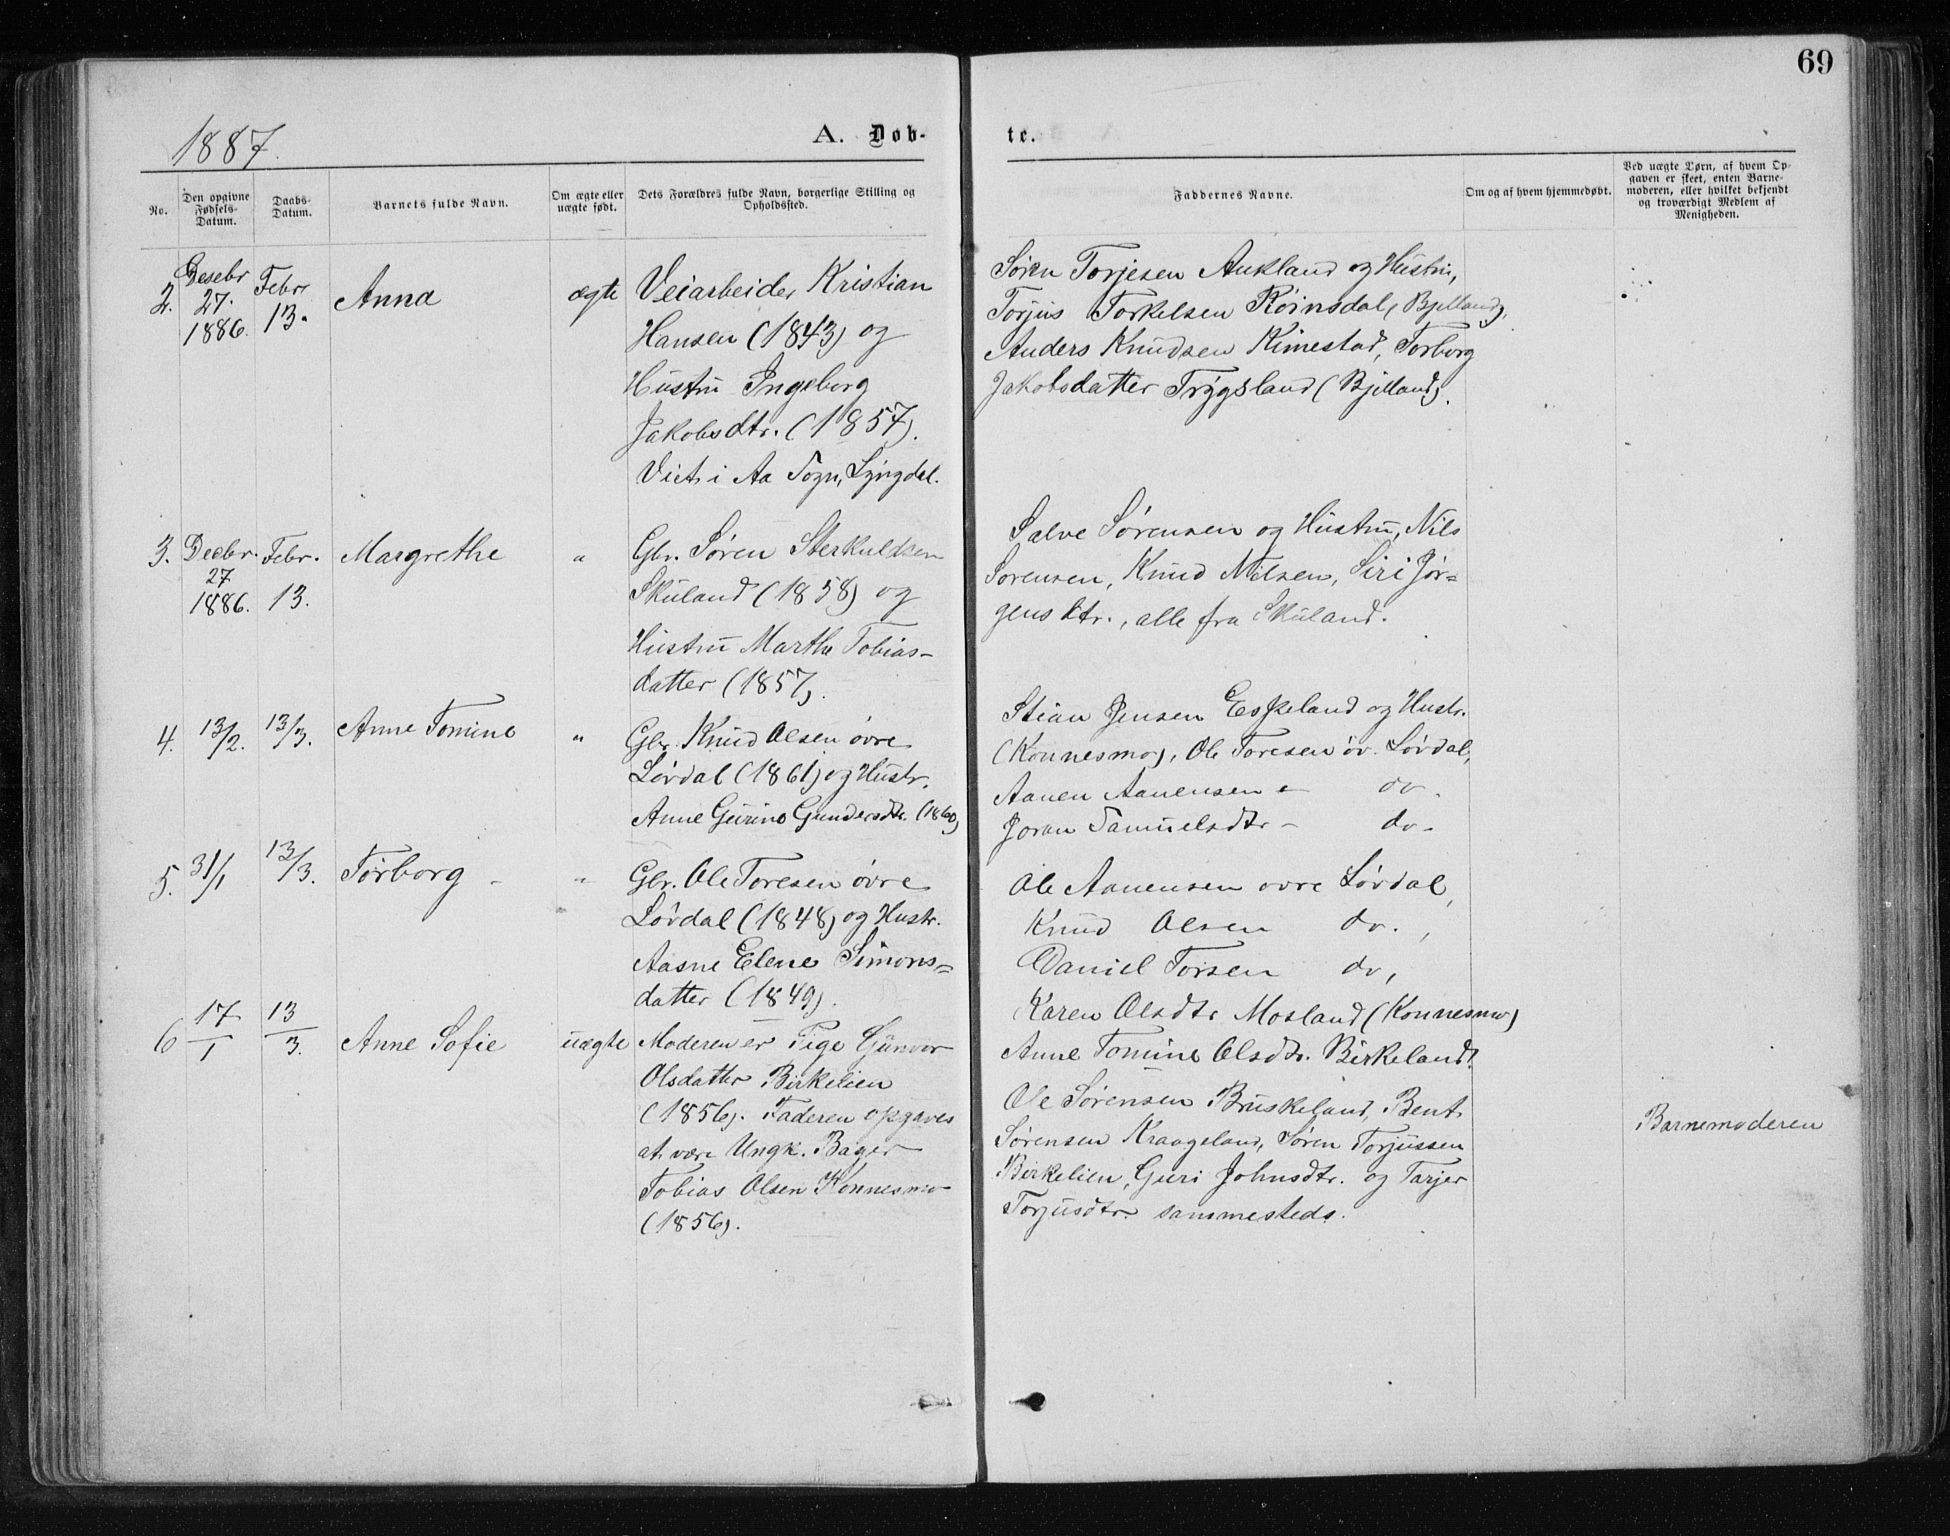 69
1887.
A. Døb-
te.
No.
Den opgivne Fødsels-Datum.
Daabs-Datum.
Barnets fulde Navn.
Om ægte eller uægte født.
Dets Forældres fulde Navn, borgerlige Stilling og Opholdssted.
Faddernes Navne.
Om og af hvem hjemmedøbt.
Ved uægte Børn, af hvem Op-
gaven er skeet, enten Barne-
moderen, eller hvilket bekjendt
og troværdigt Medlem af
Menigheden.
2. Desebr 27. 1886. Febr 13. Anna ægte
Veiarbeider Kristian
Hansen (1843) og
Hustru Ingeborg
Jakobsdtr. (1857).
Viet i Aa Sogn, Lyngdal.
Søren Torjesen Aukland og Hustru,
Torjus Torkelsen Røinsdal, (Bjelland),
Anders Knudsen Kimestad, Torborg
Jakobsdatter Trygsland (Bjelland).
3. Decbr. 27 1886. Febr. 13. Margrethe "
Gbr. Søren Sterkuldsen
Skuland (1858) og
Hustru Marthe Tobias-
datter (1857).
Salve Sørensen og Hustru, Nils
Sørensen, Knud Nilsen, Siri Jør-
gensdtr., alle fra Skuland.
4. 13/2. 13/3. Anne Tomine "
Gbr. Knud Olsen øvre
Løvdal (1861) og Hustr.
Anne Gurine Gundersdtr. (1860)
Stian Jensen Eskeland og Hustr.
(Konnesmo), Ole Toresen øv. Løvdal,
Aanen Aanensen - do.
Joran Samuelsdtr - do-
5. 31/1 13/3. Torborg - "
Gbr. Ole Toresen øvre
Løvdal (1848) og Hustr.
Aasne Elene Simons-
datter (1849).
Ole Aanensen øvre Løvdal,
Knud Olsen do.,
Daniel Torsen do,
Karen Olsdtr Mosland (Konnesmo)
Anne Tomine Olsdtr. Birkeland.
6 17/1 13/3. Anne Sofie uægte
Moderen er Pige Gunvor
Olsdatter Birkelien
(1856). Faderen opgaves
at være Ungk. Bager
Tobias Olsen Konnesmo
(1856).
Ole Sørensen Bruskeland, Bent
Sørensen Kraageland, Søren Torjussen
Birkelien, Guri Johnsdtr. og Tarjer
Torjusdtr. sammesteds.
Barnemoderen